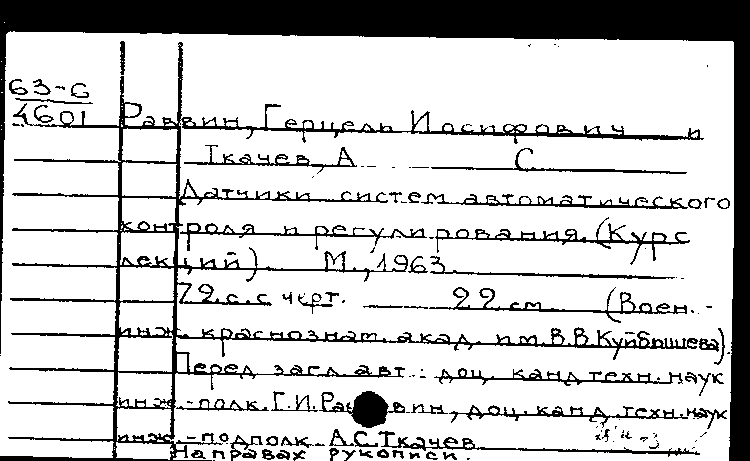 63-6
4601
Раввин, Герцель Иосифович и
Ткачев, А С
Датчики систем автоматического
контроля и регулирования. (Курс
лекций). М., 1963.
72 с. с черт. 22 см (Воен.-
инж. краснознам. акад. им. В.В. Куйбышева).
Перед загл. авт.: доц. канд. техн. наук
инж.-полк. Г.И. Раввин, доц. канд. техн. наук
инж.-подполк. А.С. Ткачев
На правах рукописи.